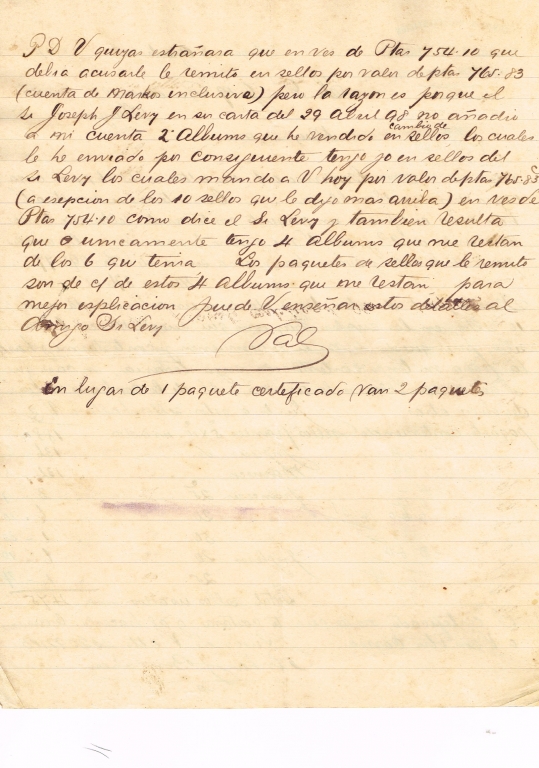 P D V quizas estrañara que en ves de Ptas 754.10 que
debia acusarle le remito en sellos por valor de ptas 765.83
(cuenta de Markos inclusiva) pero la razon es porque el
Sr Joseph J Levy en su carta del 29 Abril 98 no añadio
a mi cuenta 2 Albums que he vendido en cambio de sellos los cuales
le he enviado por consiguiente tengo yo en sellos del
Sr Levy los cuales mando a V hoy por valor de ptas 765.83
(a esepcion de los 10 sellos que le digo mas arriba) en ves de
Ptas 754.10 como dice el Sr Levy y tambien resulta
que unicamente tengo 4 albums que me restan
de los 6 que tenia Los paquetes de sellos que le remito
son de c/ de estos 4 albums que me restan para
mejor esplicacion puede V enseñar estos detalles al
Amigo Sr Levy
En lugar de 1 paquete certeficado van 2 paquetes